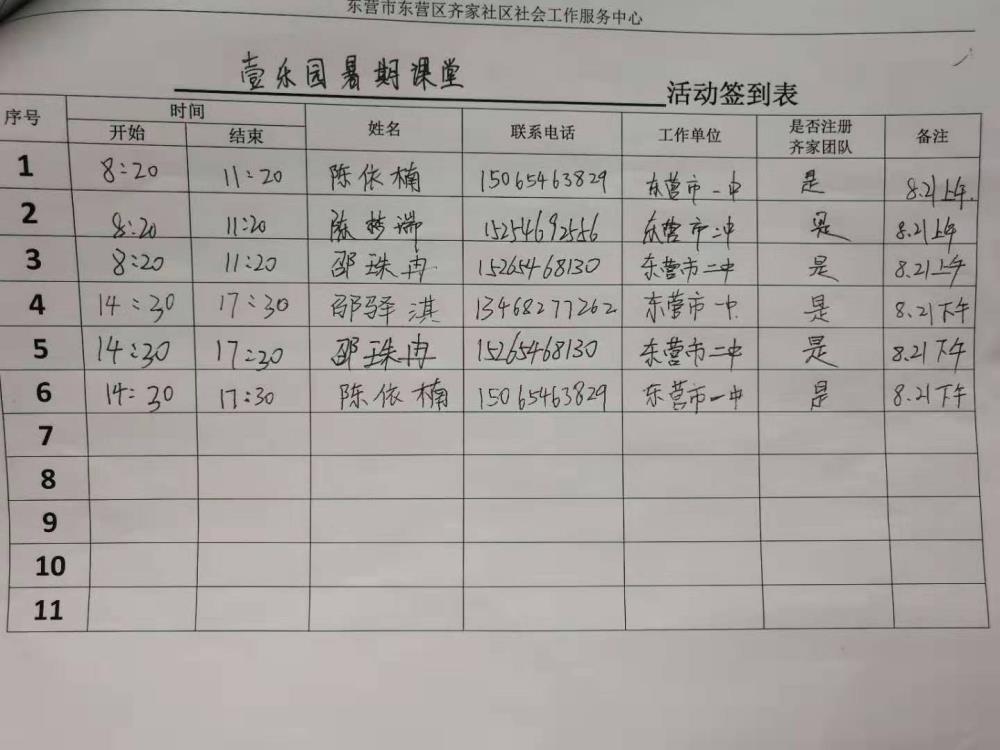 东营市东营区齐家社区社会工作服务中心
壹乐园暑期课堂 活动签到表
序号 时间 姓名 联系电话 工作单位 是否注册齐家团队 备注
开始 结束
1 8:20 11:20 陈依楠 15065463829 东营市一中 是 8.21上午.
2 8:20 11:20 陈梦端 15254692556 东营市二中 是 8.21上午
3 8:20 11:20 邵珠冉 15265468130 东营市二中 是 8.21上午
4 14:30 17:30 邵驿淇 13468277262 东营市一中 是 8.21下午
5 14:30 17:30 邵珠冉 15265468130 东营市二中 是 8.21下午
6 14:30 17:30 陈依楠 15065463829 东营市一中 是 8.21下午
7
8
9
10
11